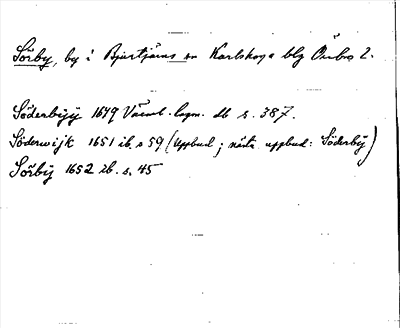 Sörby, by i Bjurtjärns sn Karlskoga blg Örebro l.
Söderbÿÿ 1649 Värml. lagm. db s. 387.
Söderwijk 1651 ib. s 59 (uppbud; nästa uppbud: Söderbÿ)
Sörbÿ 1652 ib. s. 45